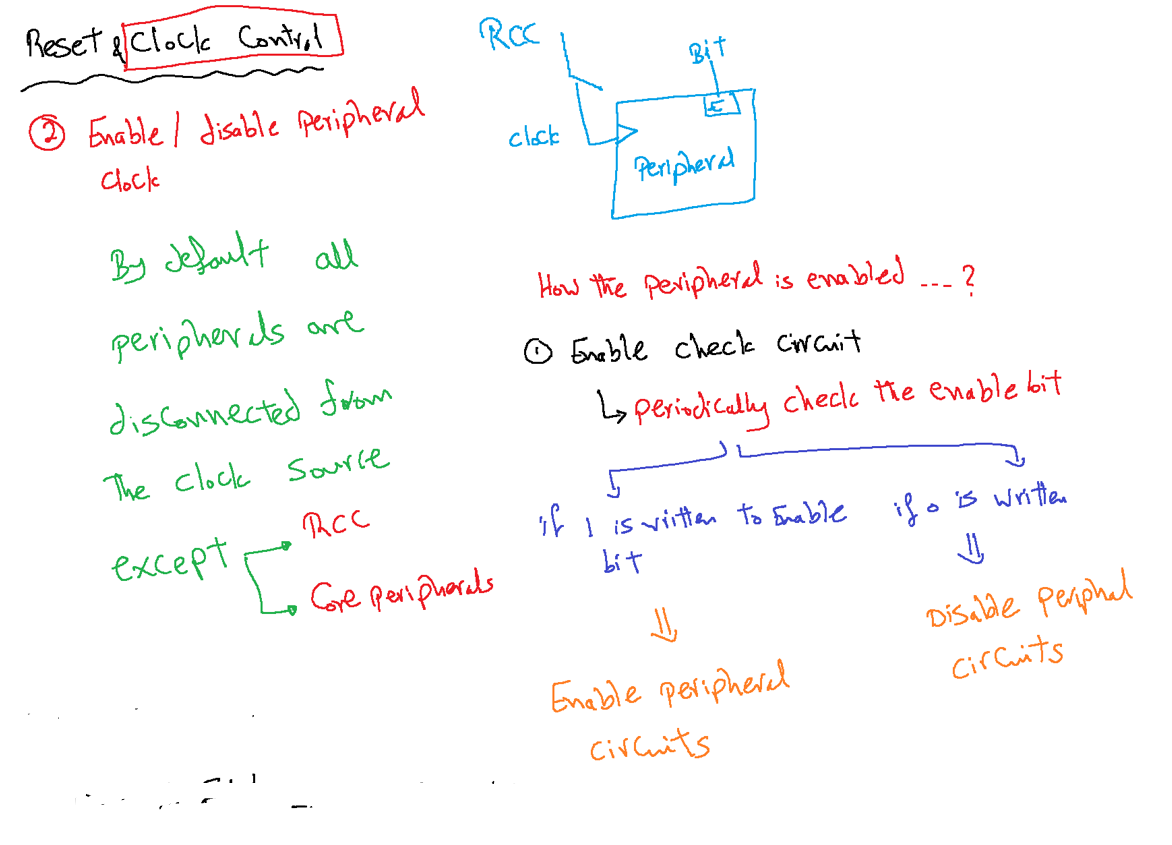 Reset & Clock Control
② Enable / disable peripheral
clock
By default all
peripherals are
disconnected from
The clock source
except
RCC
Core peripherals
RCC
Bit
E
clock
Peripheral
How the peripheral is enabled ... ?
① Enable check circuit
↳ periodically check the enable bit
if 1 is written to Enable
bit
⇓
Enable peripheral
circuits
if 0 is written
⇓
Disable periphal
circuits